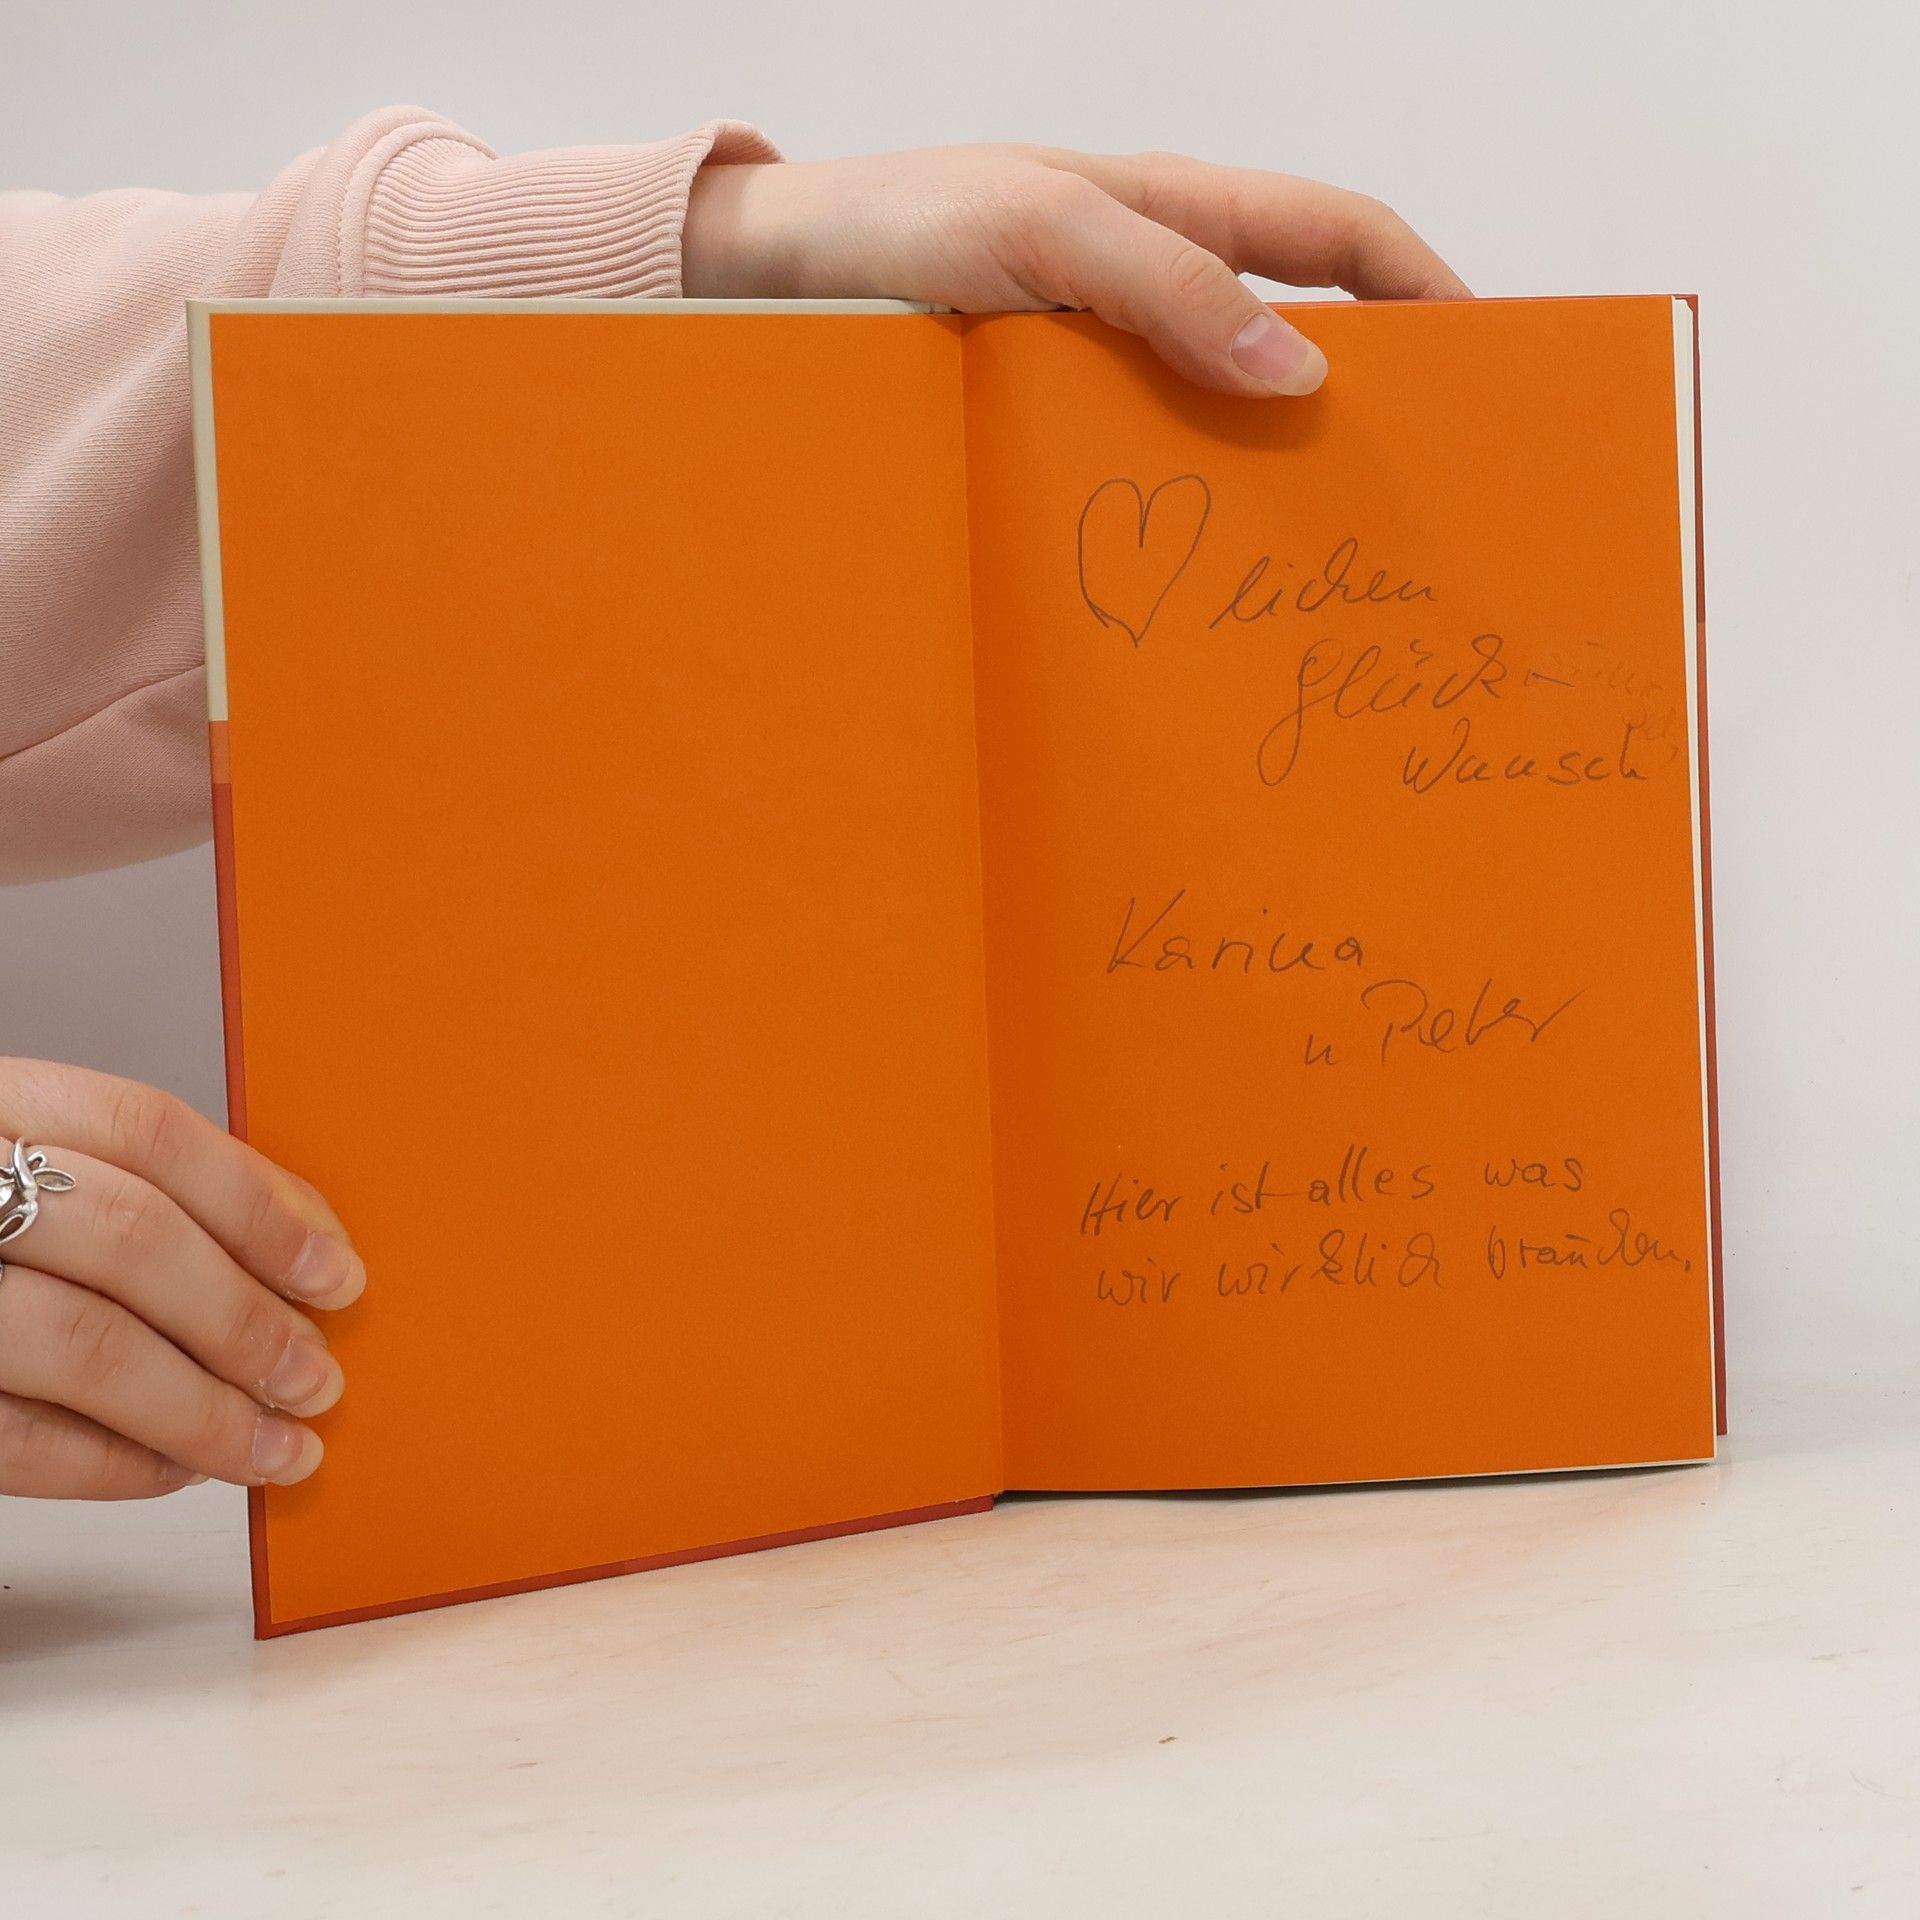 ♡lichen
Glück-
Wunsch
Karina
u Peter
Hier ist alles was
wir wirklich brauchen.